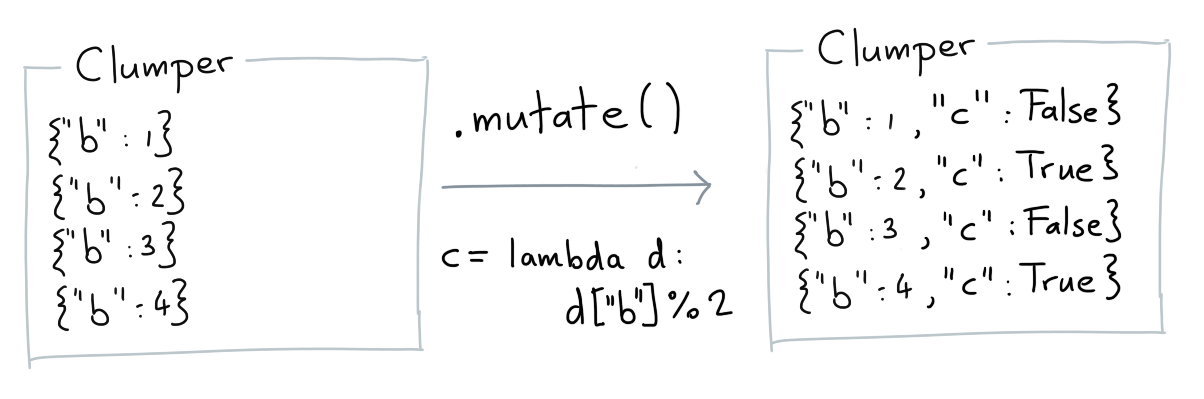 Clumper
{"b" : 1}
{"b" : 2}
{"b" : 3}
{"b" : 4}
.mutate()
c = lambda d:
d["b"]%2
Clumper
{"b" : 1, "c" : False}
{"b" : 2, "c" : True}
{"b" : 3, "c" : False}
{"b" : 4, "c" : True}